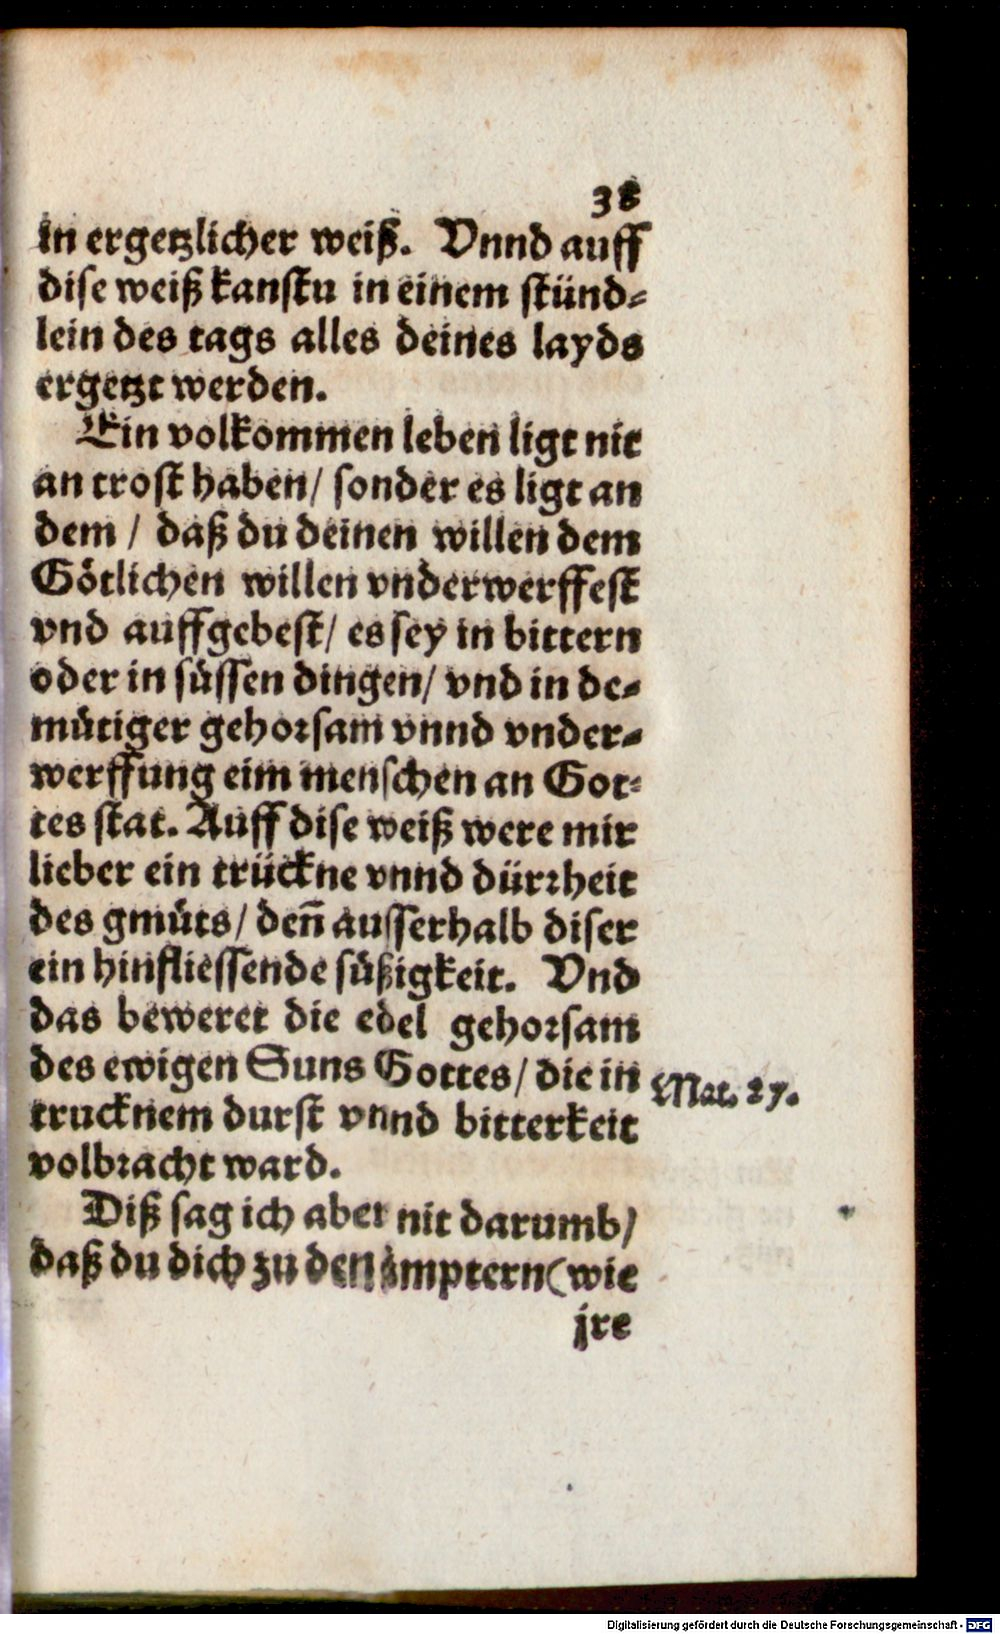 38
in ergetzlicher weiß. Vnnd auff
dise weiß kanstu in einem stünd-
lein des tags alles deines layds
ergetzt werden.
Ein volkommen leben ligt nit
an trost haben/ sonder es ligt an
dem / daß du deinen willen dem
Götlichen willen vnderwerffest
vnd auffgebest/ es sey in bittern
oder in süssen dingen/ vnd in de-
mütiger gehorsam vnnd vnder-
werffung eim menschen an Got-
tes stat. Auff dise weiß were mir
lieber ein trückne vnnd dürrheit
des gmüts/ deñ ausserhalb diser
ein hinfliessende süßigkeit. Vnd
das beweret die edel gehorsam
des ewigen Suns Gottes/ die in
Mat. 27.
trucknem durst vnnd bitterkeit
volbracht ward.
Diß sag ich aber nit darumb/
daß du dich zu den ämptern (wie
jre
Digitalisierung gefördert durch die Deutsche Forschungsgemeinschaft - DFG